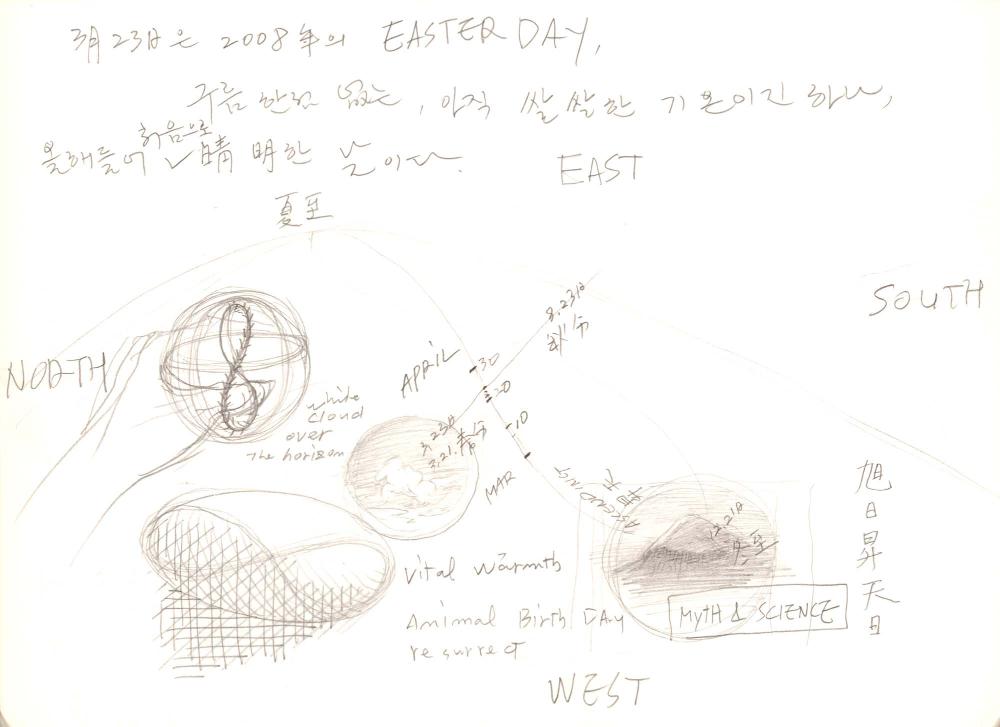 3月 23日은 2008年의 EASTER DAY,
구름 한점 없는, 아직 쌀쌀한 기온이긴 하나,
올해들어 처음으로 晴明한 날이다.
EAST
夏至
SOUTH
NORTH
8.23日
秋分
APRIL
30
20
10
white
cloud
over
the horizon
3.23日
3.21.春分
MAR
ASCENDING
昇天
12.21日
冬至
旭日昇天日
Vital Warmth
Animal Birth DAy
resurrect
MyTH & SCIENCE
WEST